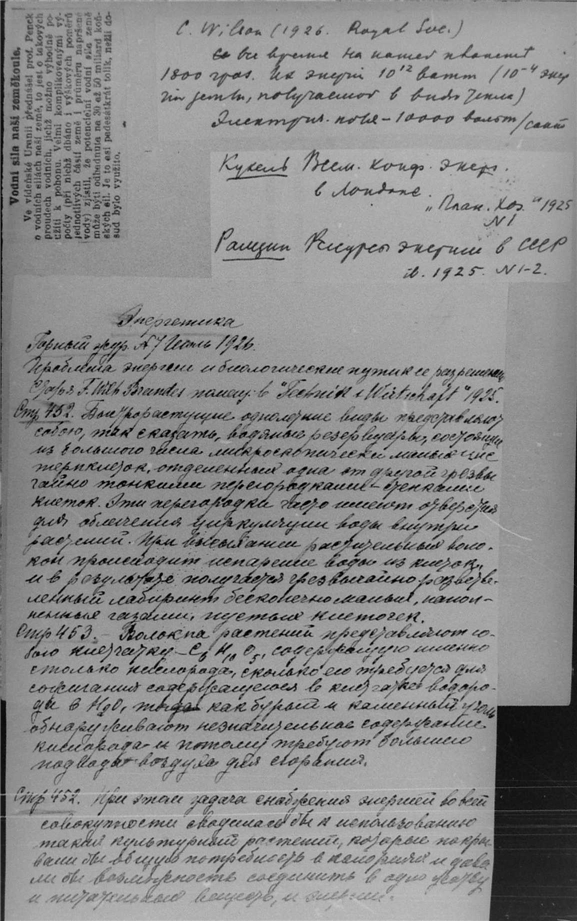 Vodní síla naší zeměkoule.
Ve vídeňské Uranii přednášel prof. Penck
o vodních silách naší země, to jest o takových
proudech vodních, jichž možno výhodně po-
užíti k pohonu. Velmi komplikovanými vý-
počty (při nichž dbáno i výškových poměrů
jednotlivých částí země i průměru napršené
vody) zjistil, že potenciální vodní síla země
může býti odhadnuta na 30 až 50 miliard koň-
ských sil. Je to asi padesátkrát tolik, nežli do-
sud bylo využito.
C. Wilson (1926. Royal Soc.)
все время на нашей планете
1800 гроз. Их энергия 10¹² ватт (10⁻⁴ энер
гии земли, получаемой в виде тепла)
Электрич. поле - 10000 вольт/сант
Кукель Всем. конф. энерг.
в Лондоне.
"План. Хоз." 1925
N1
Рамзин Ресурсы энергии в СССР
1925. N1-2.
Энергетика
Горный жур. №7 Июль 1926.
Проблема энергии и биологические пути к ее разрешению
Brandes помещ. в "Technik u Wirtschaft" 1925.
Стр 452. Быстрорастущие однолетние виды представляют
собою, так сказать, водяные резервуары, состоящие
из большого числа микроскопически малых цис
терн клеток, отделенных одна от другой чрезвы
чайно тонкими перегородками - стенками
клеток. Эти перегородки часто имеют отверстия
для облегчения циркуляции воды внутри
растений. При высыхании растительных воло-
кон происходит испарение воды из клеток,
и в результате получается чрезвычайно разветв-
ленный лабиринт бесконечно малых, напол-
ненных газами, пустых клеточек.
Стр 453. - Волокна растений представляют со-
бою клетчатку - C₆ H₁₀ O₅, содержащую именно
столько кислорода, сколько его требуется для
сожигания содержащегося в клетчатке водоро-
да в H₂O, тогда как бурый и каменный уголь
обнаруживают незначительное содержание
кислорода и потому требуют большего
подвода воздуха для сгорания.
Стр 452. При этом задача снабжения энергией во всей
совокупности сводилась бы к использованию
таких культурных растений, которые покры-
вали бы общую потребность в калориях и дава
ли бы возможность соединить в одно
и питательных веществ, и энергии.